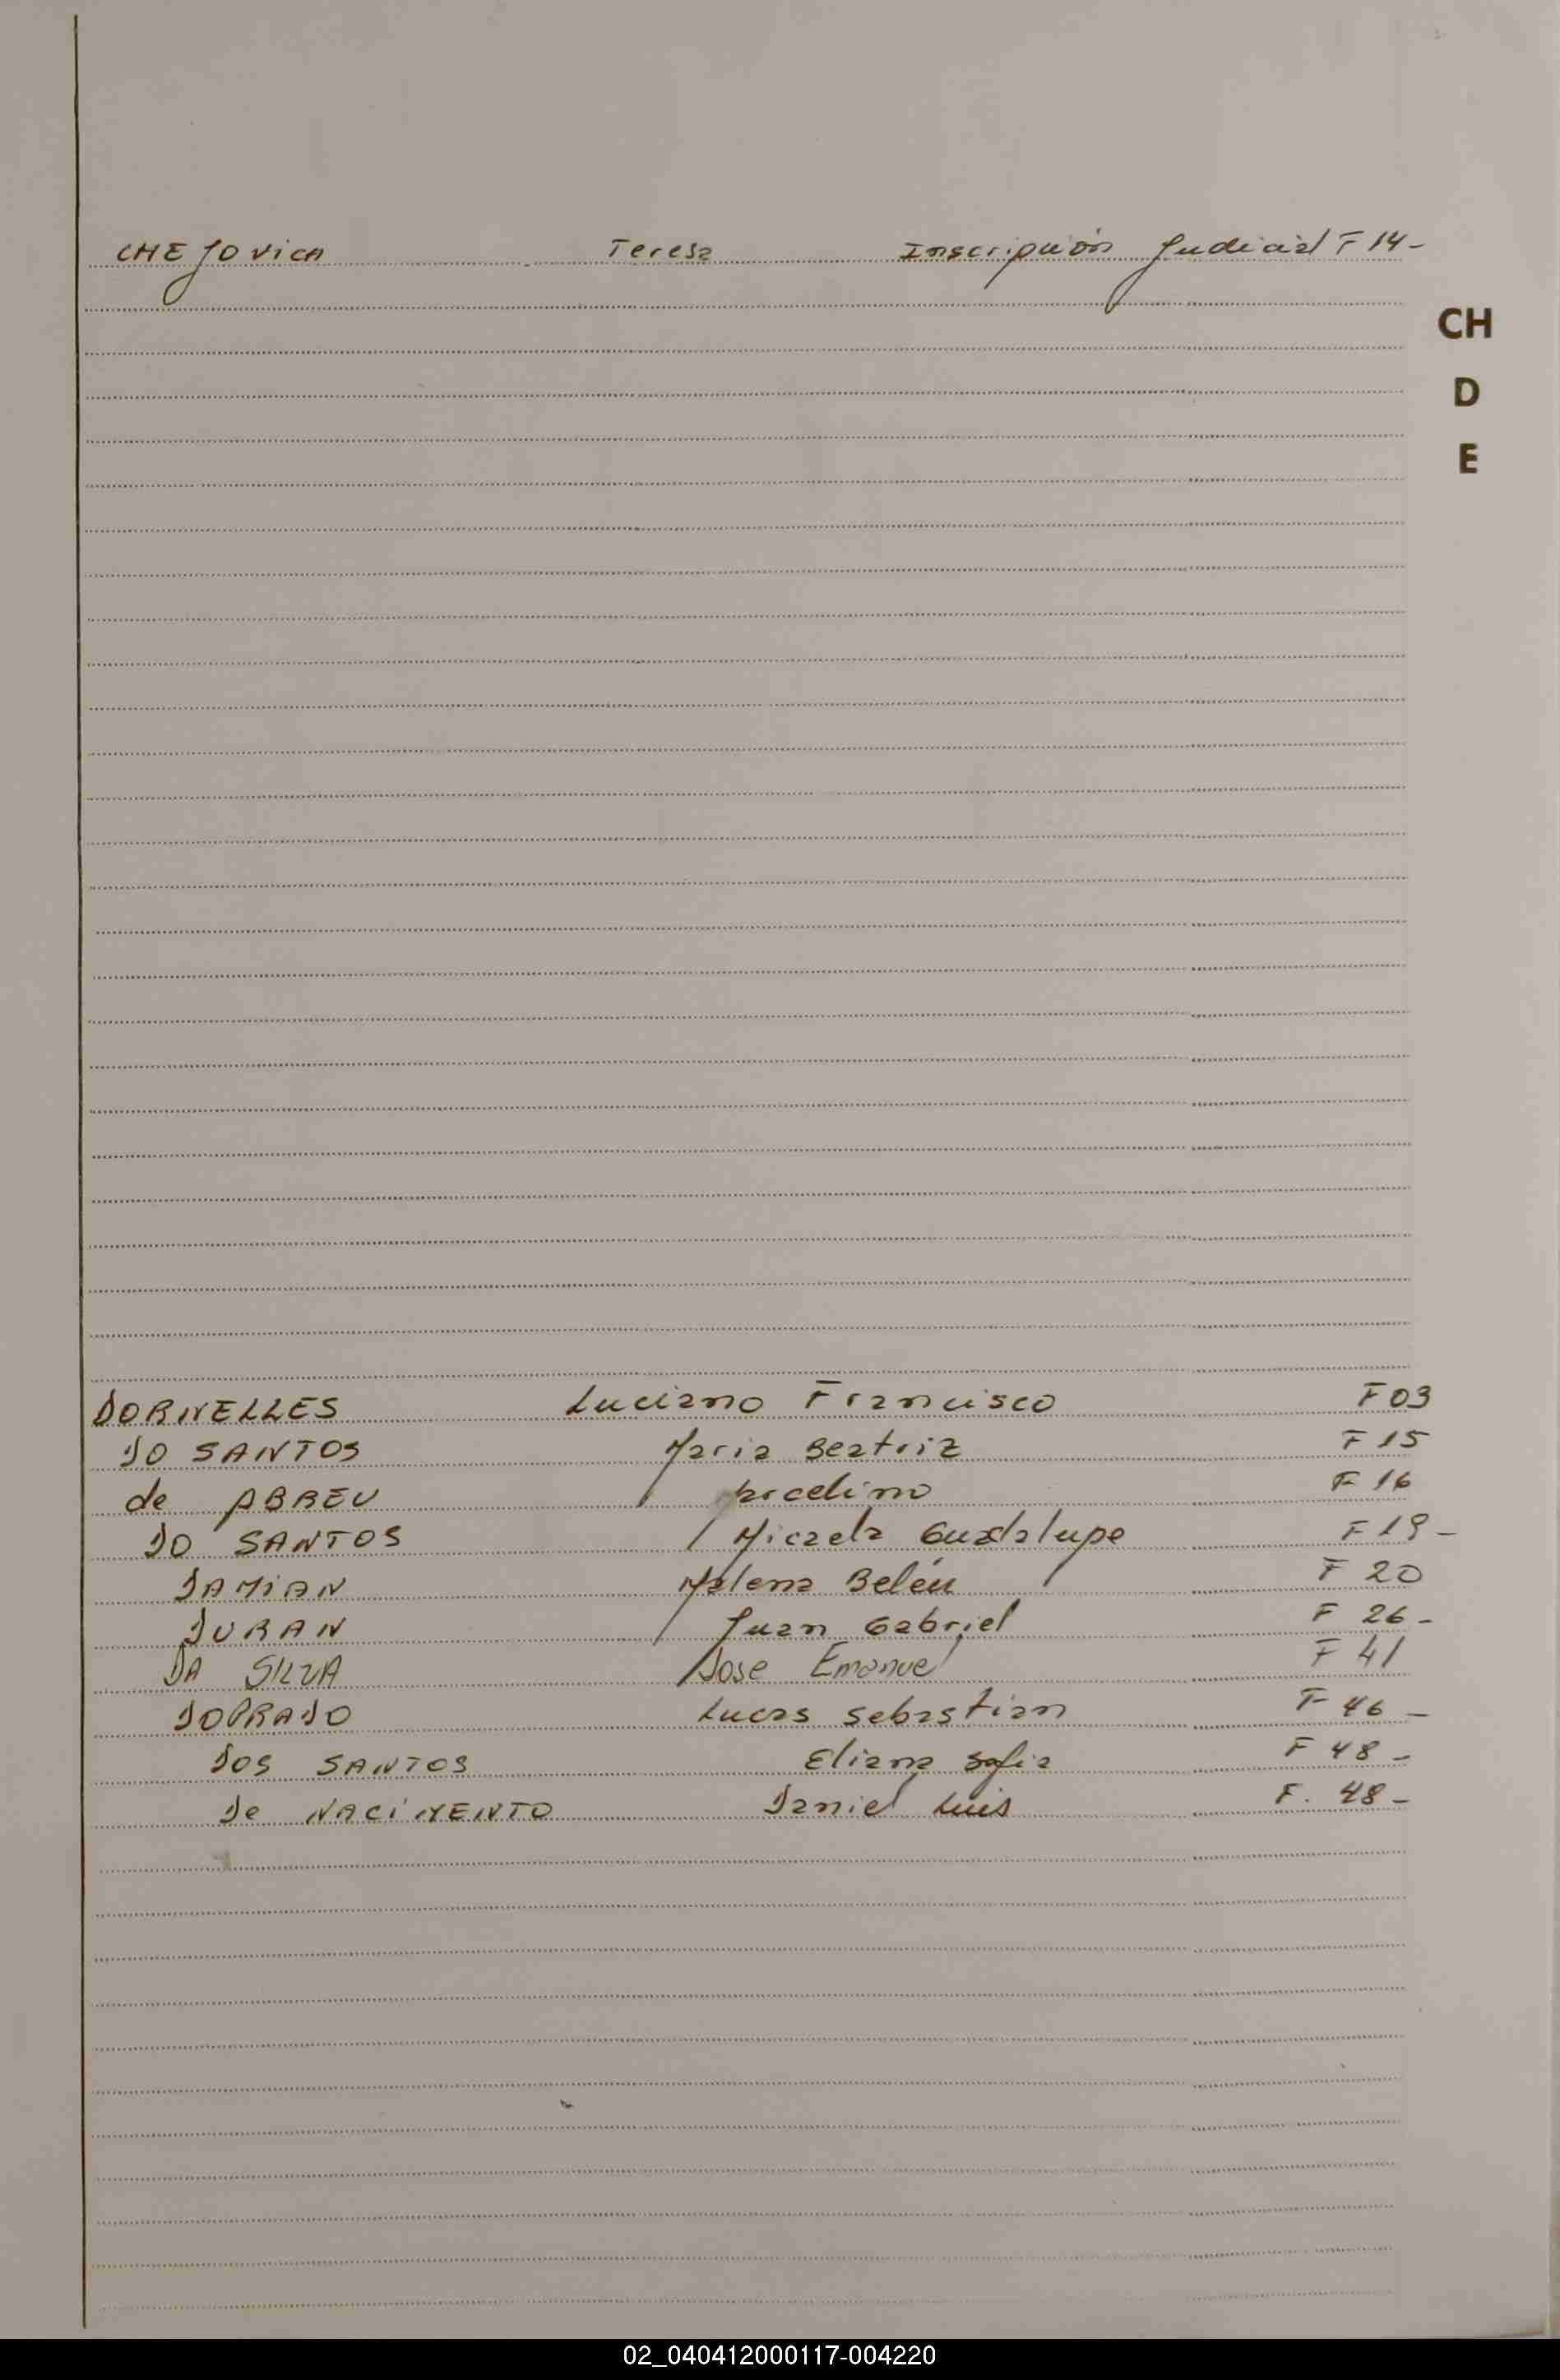 CHEJOVICA Teresa Inscripción Judicial F 14-
CH
D
E
DORNELLES Luciano Francisco F 03
DO SANTOS Maria Beatriz F 15
de ABREU F 16
DO SANTOS Micaela Guadalupe F 19-
DAMIAN Malena Belén F 20
DURAN Juan Gabriel F 26-
DA SILVA Jose Emanuel F 41
DOPRADO Lucas Sebastian F 46-
DOS SANTOS Eliana Sofia F 48-
De NACIMENTO Daniel Luis F. 48-
02_040412000117-004220